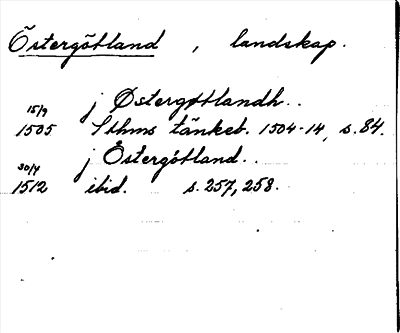 Östergötland, landskap.
15/9 j Østergøtlandh..
1505 Sthms tänkeb. 1504-14, s. 84.
30/4 j Östergötland..
1512 ibid. s. 257, 258.